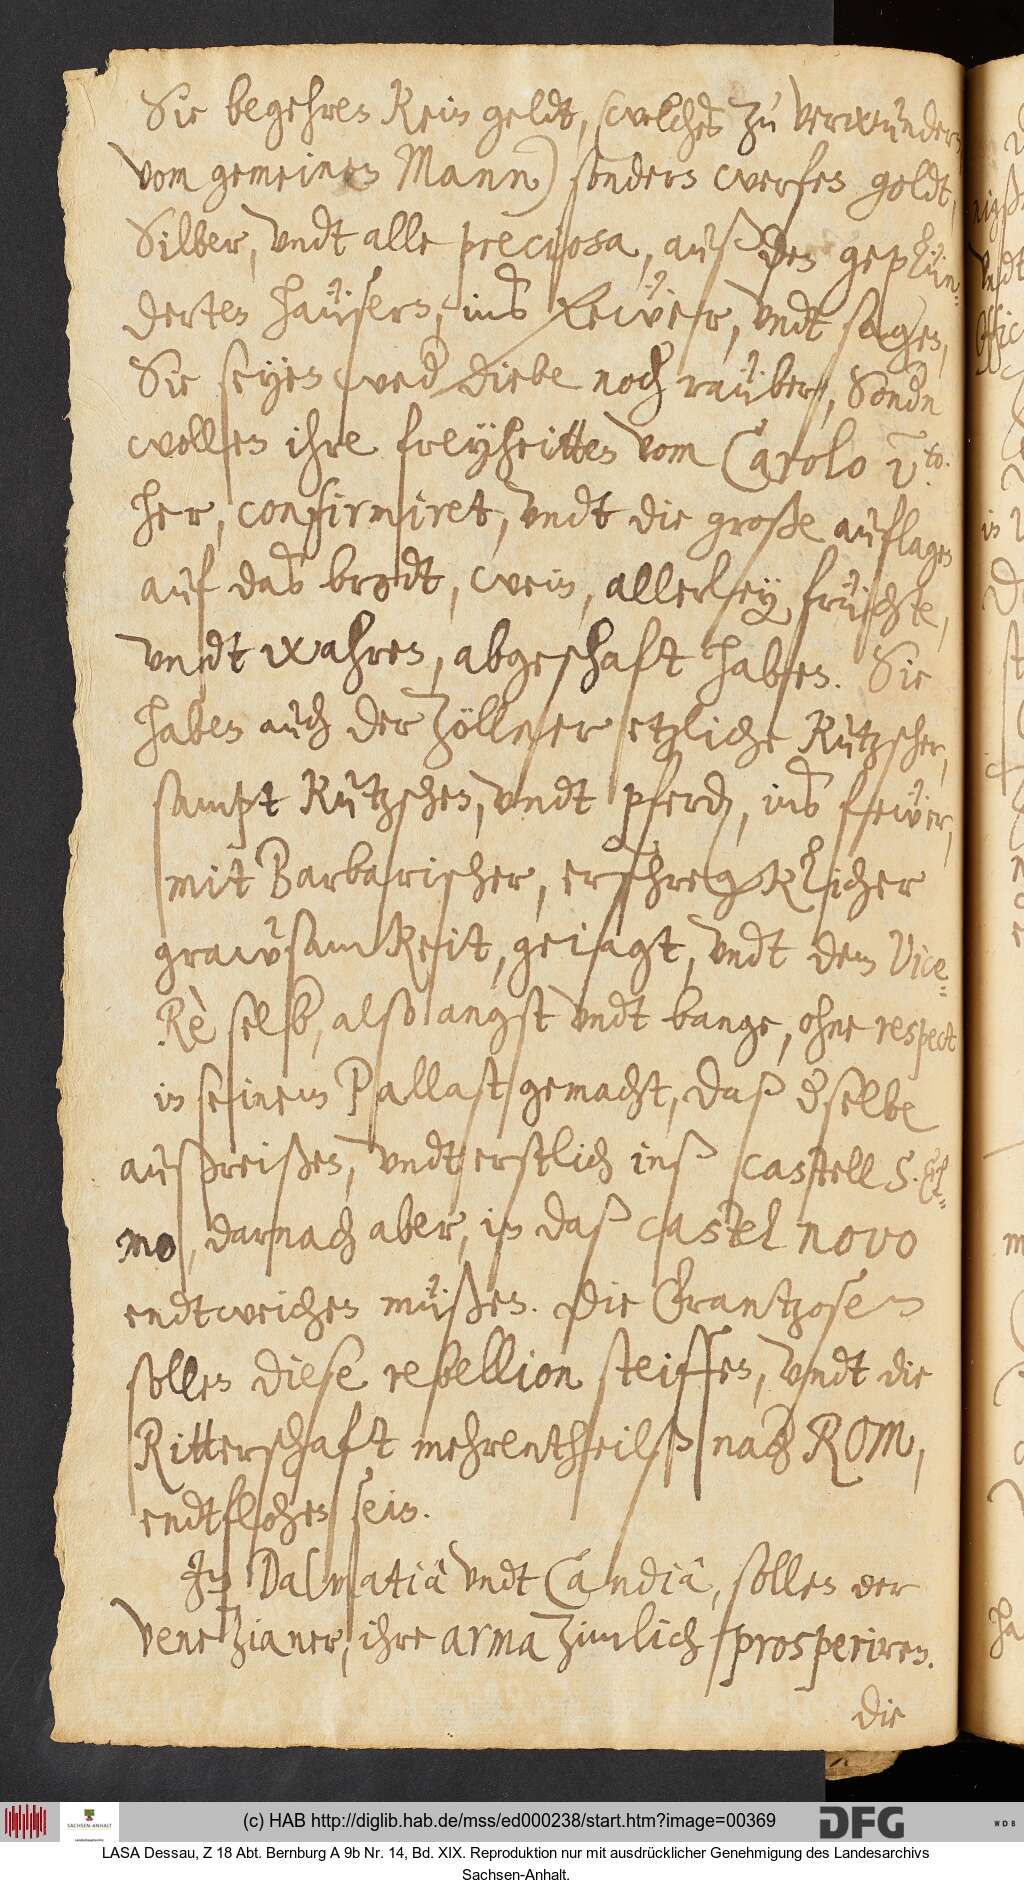 Sie begehren kein geldt, (welches zu verwundern
vom gemeinen Mann) sondern werfen goldt,
Silber, vndt alle preciosa, auß den geplün-
derten haüsern, ins feẅer, vndt sagen,
Sie seyen wed diebe noch raüber, Sondn
wollen ihre freyheitten vom Carolo v.to
her, confirmiret, vndt die große auflagen
auf das brodt, wein, allerley früchte,
vndt wahren, abgeschaft haben. Sie
haben auch der Zöllner etzliche Kutzscher,
sampt Kutzschen, vndt pferden, ins feẅer,
mit Barbarischer, erschregklicher
grawsamkeit, geiagt, vndt den Vice
Rè selb, also angst vndt bange, ohne respect
in seinem Pallast gemacht, daß dselbe
außreißen, vndt erstlich inß castell S. El-
mo, darnach aber, in daß castel novo
endtweichen müßen. Die Frantzosen
sollen diese rebellion steiffen, vndt die
Ritterschaft mehrentheilß nach ROM,
endtflohen sein.
In Dalmatia vndt Candia, sollen der
Venezianer, ihre arma zimlich prosperiren.
Die
(c) HAB http://diglib.hab.de/mss/ed000238/start.htm?image=00369
SACHSEN-ANHALT
DFG
WDB
LASA Dessau, Z 18 Abt. Bernburg A 9b Nr. 14, Bd. XIX. Reproduktion nur mit ausdrücklicher Genehmigung des Landesarchivs
Sachsen-Anhalt.